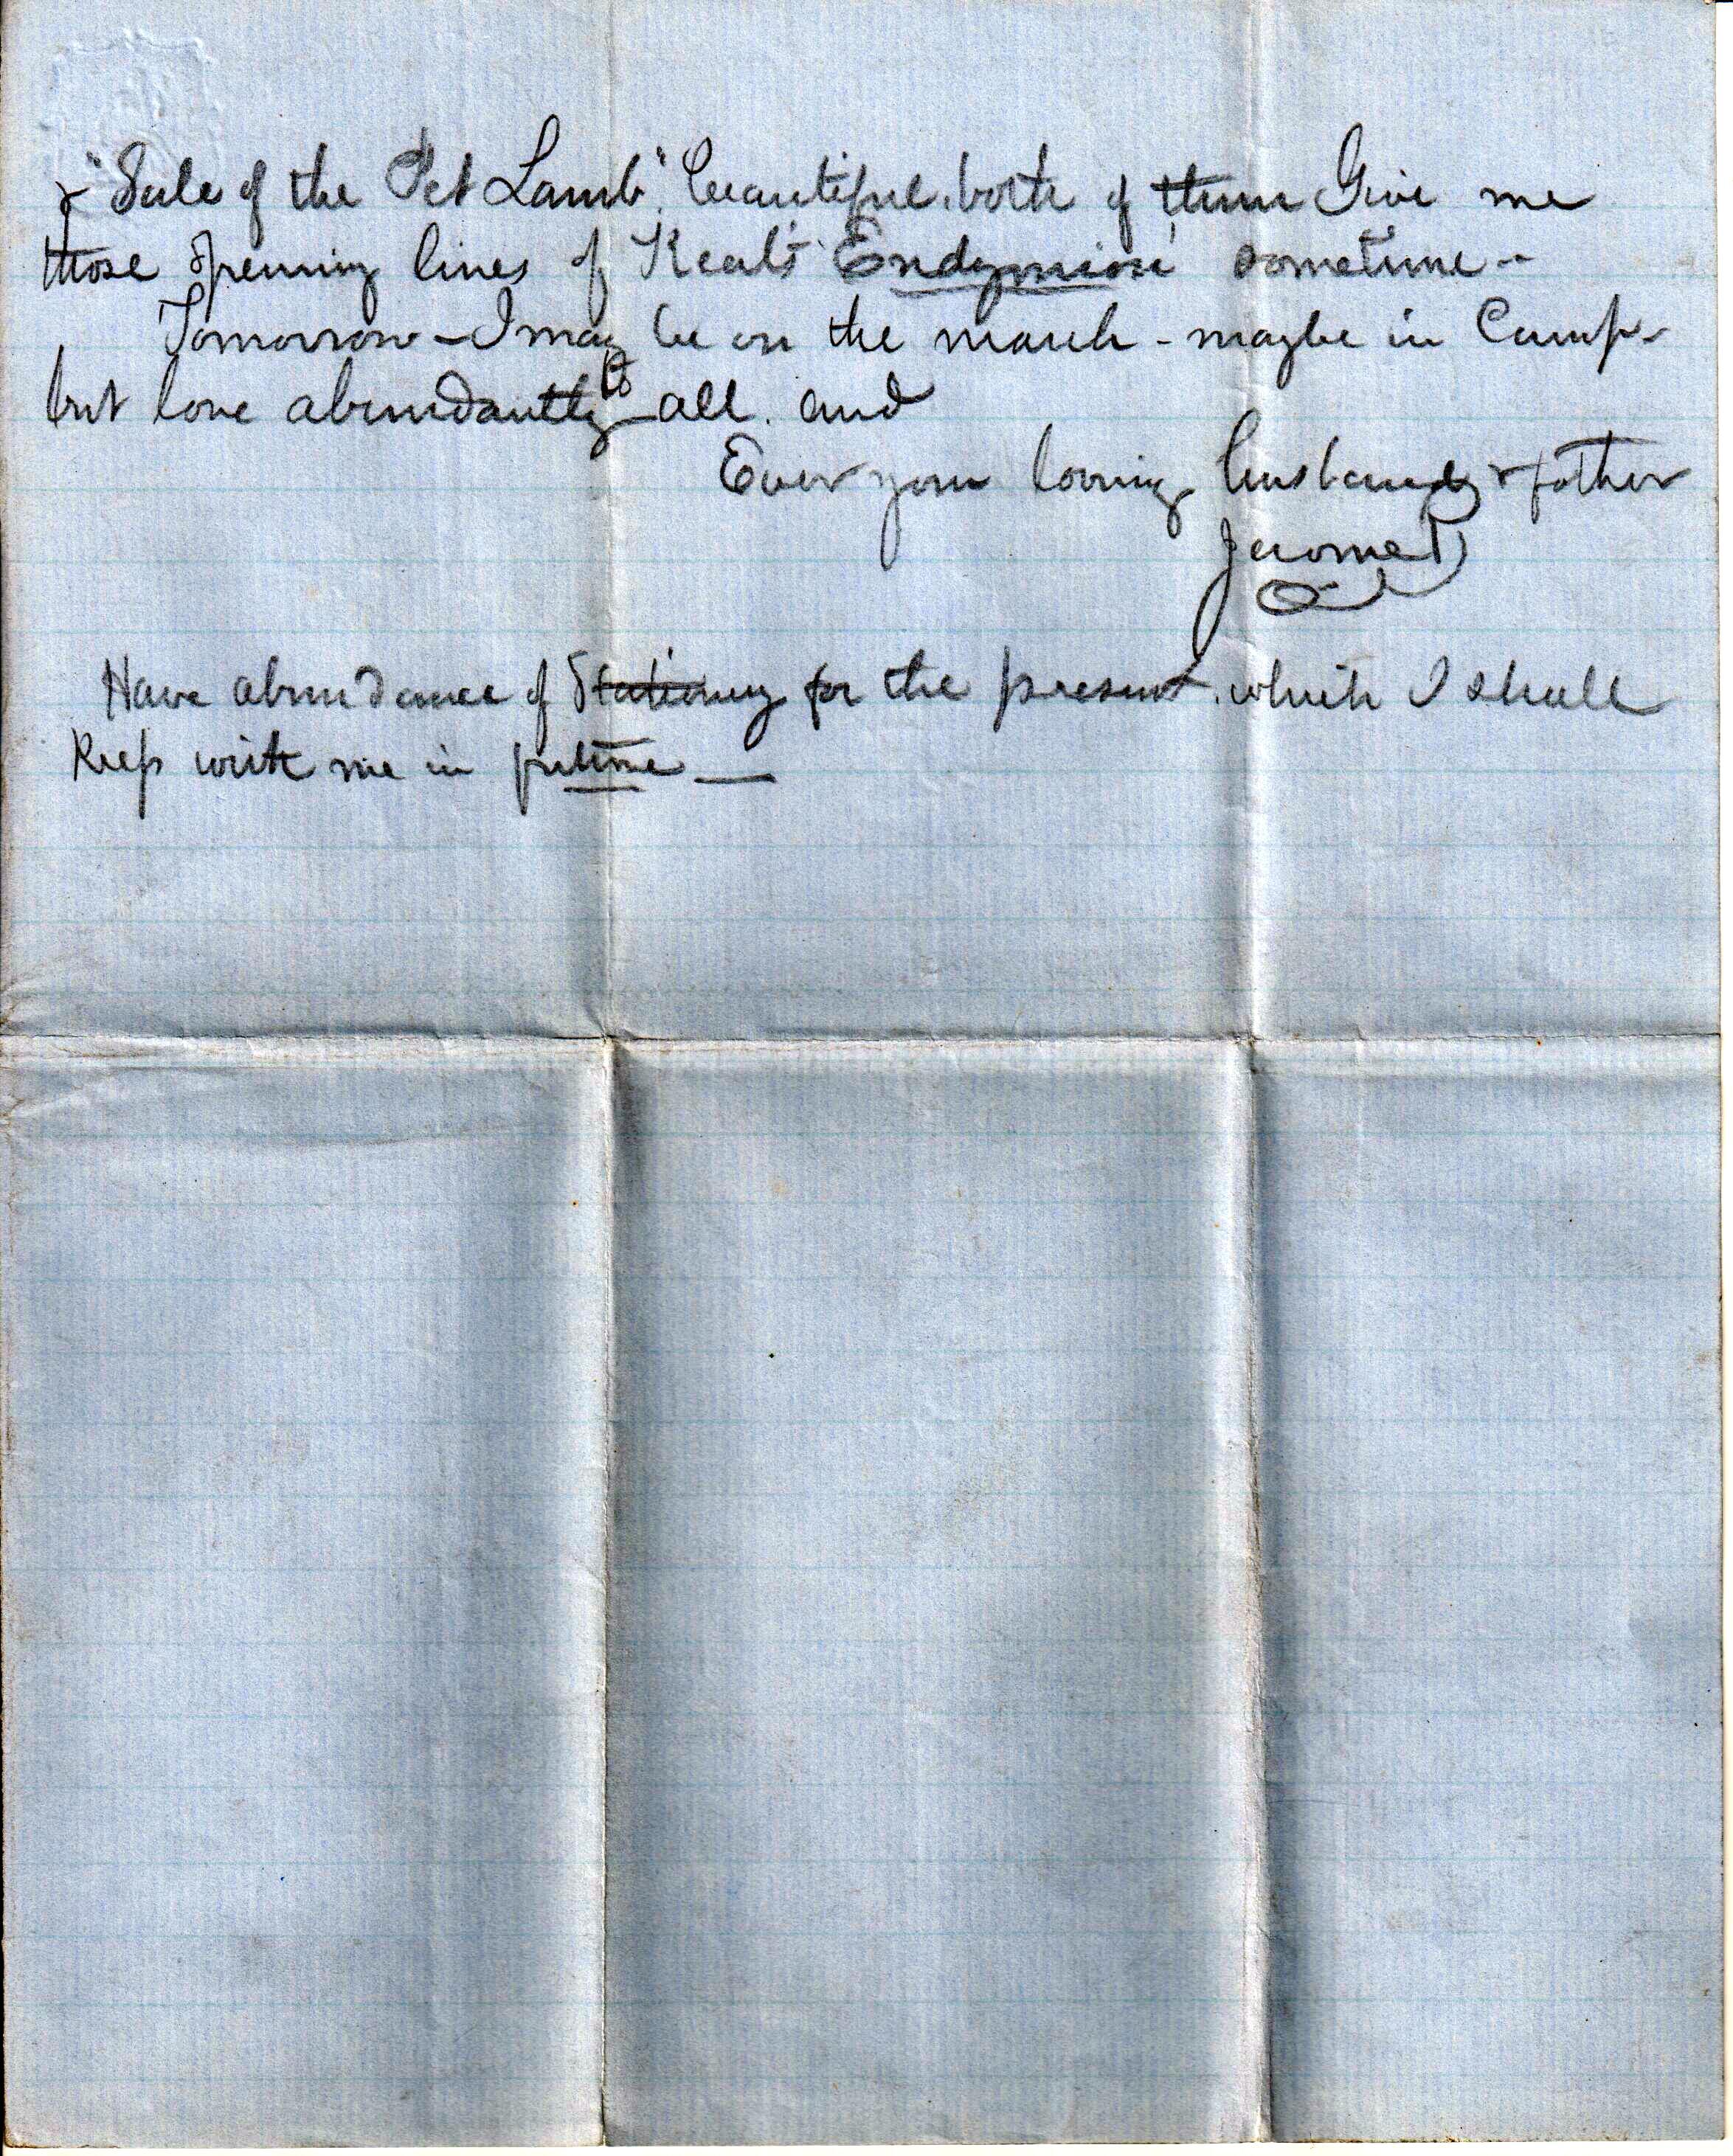 & "Sale of the Pet Lamb". beautiful. both of them Give me
those opening lines of Keats 'Endymion' sometime -
Tomorrow - I may be on the march - maybe in Camp -
but love abundantly to all. and
Ever your loving husband & father
Jerome
Have abundance of Stationery for the present. which I shall
Keep with me in future —